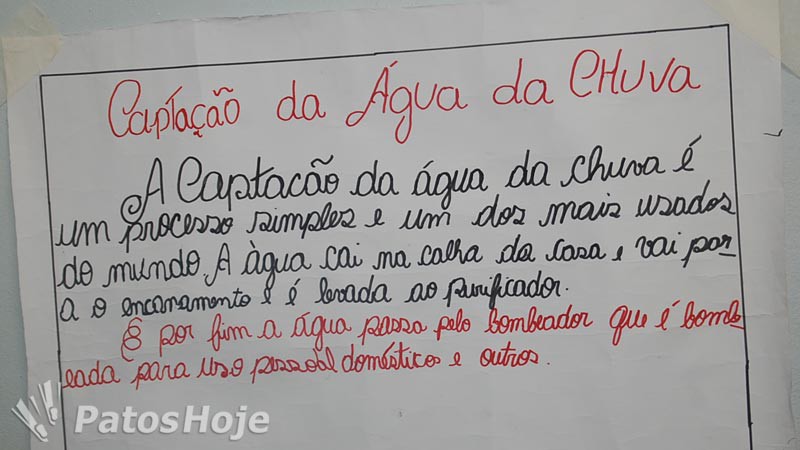 Captação da Água da CHUVA
A Captacão da água da chuva é
um processo simples e um dos mais usados
do mundo. A àgua cai na calha da casa e vai par-
a o encanamento e é levada ao purificador.
E por fim a água passa pelo bombeador que é bomb-
eada para uso pessoal domésticos e outros.
PatosHoje